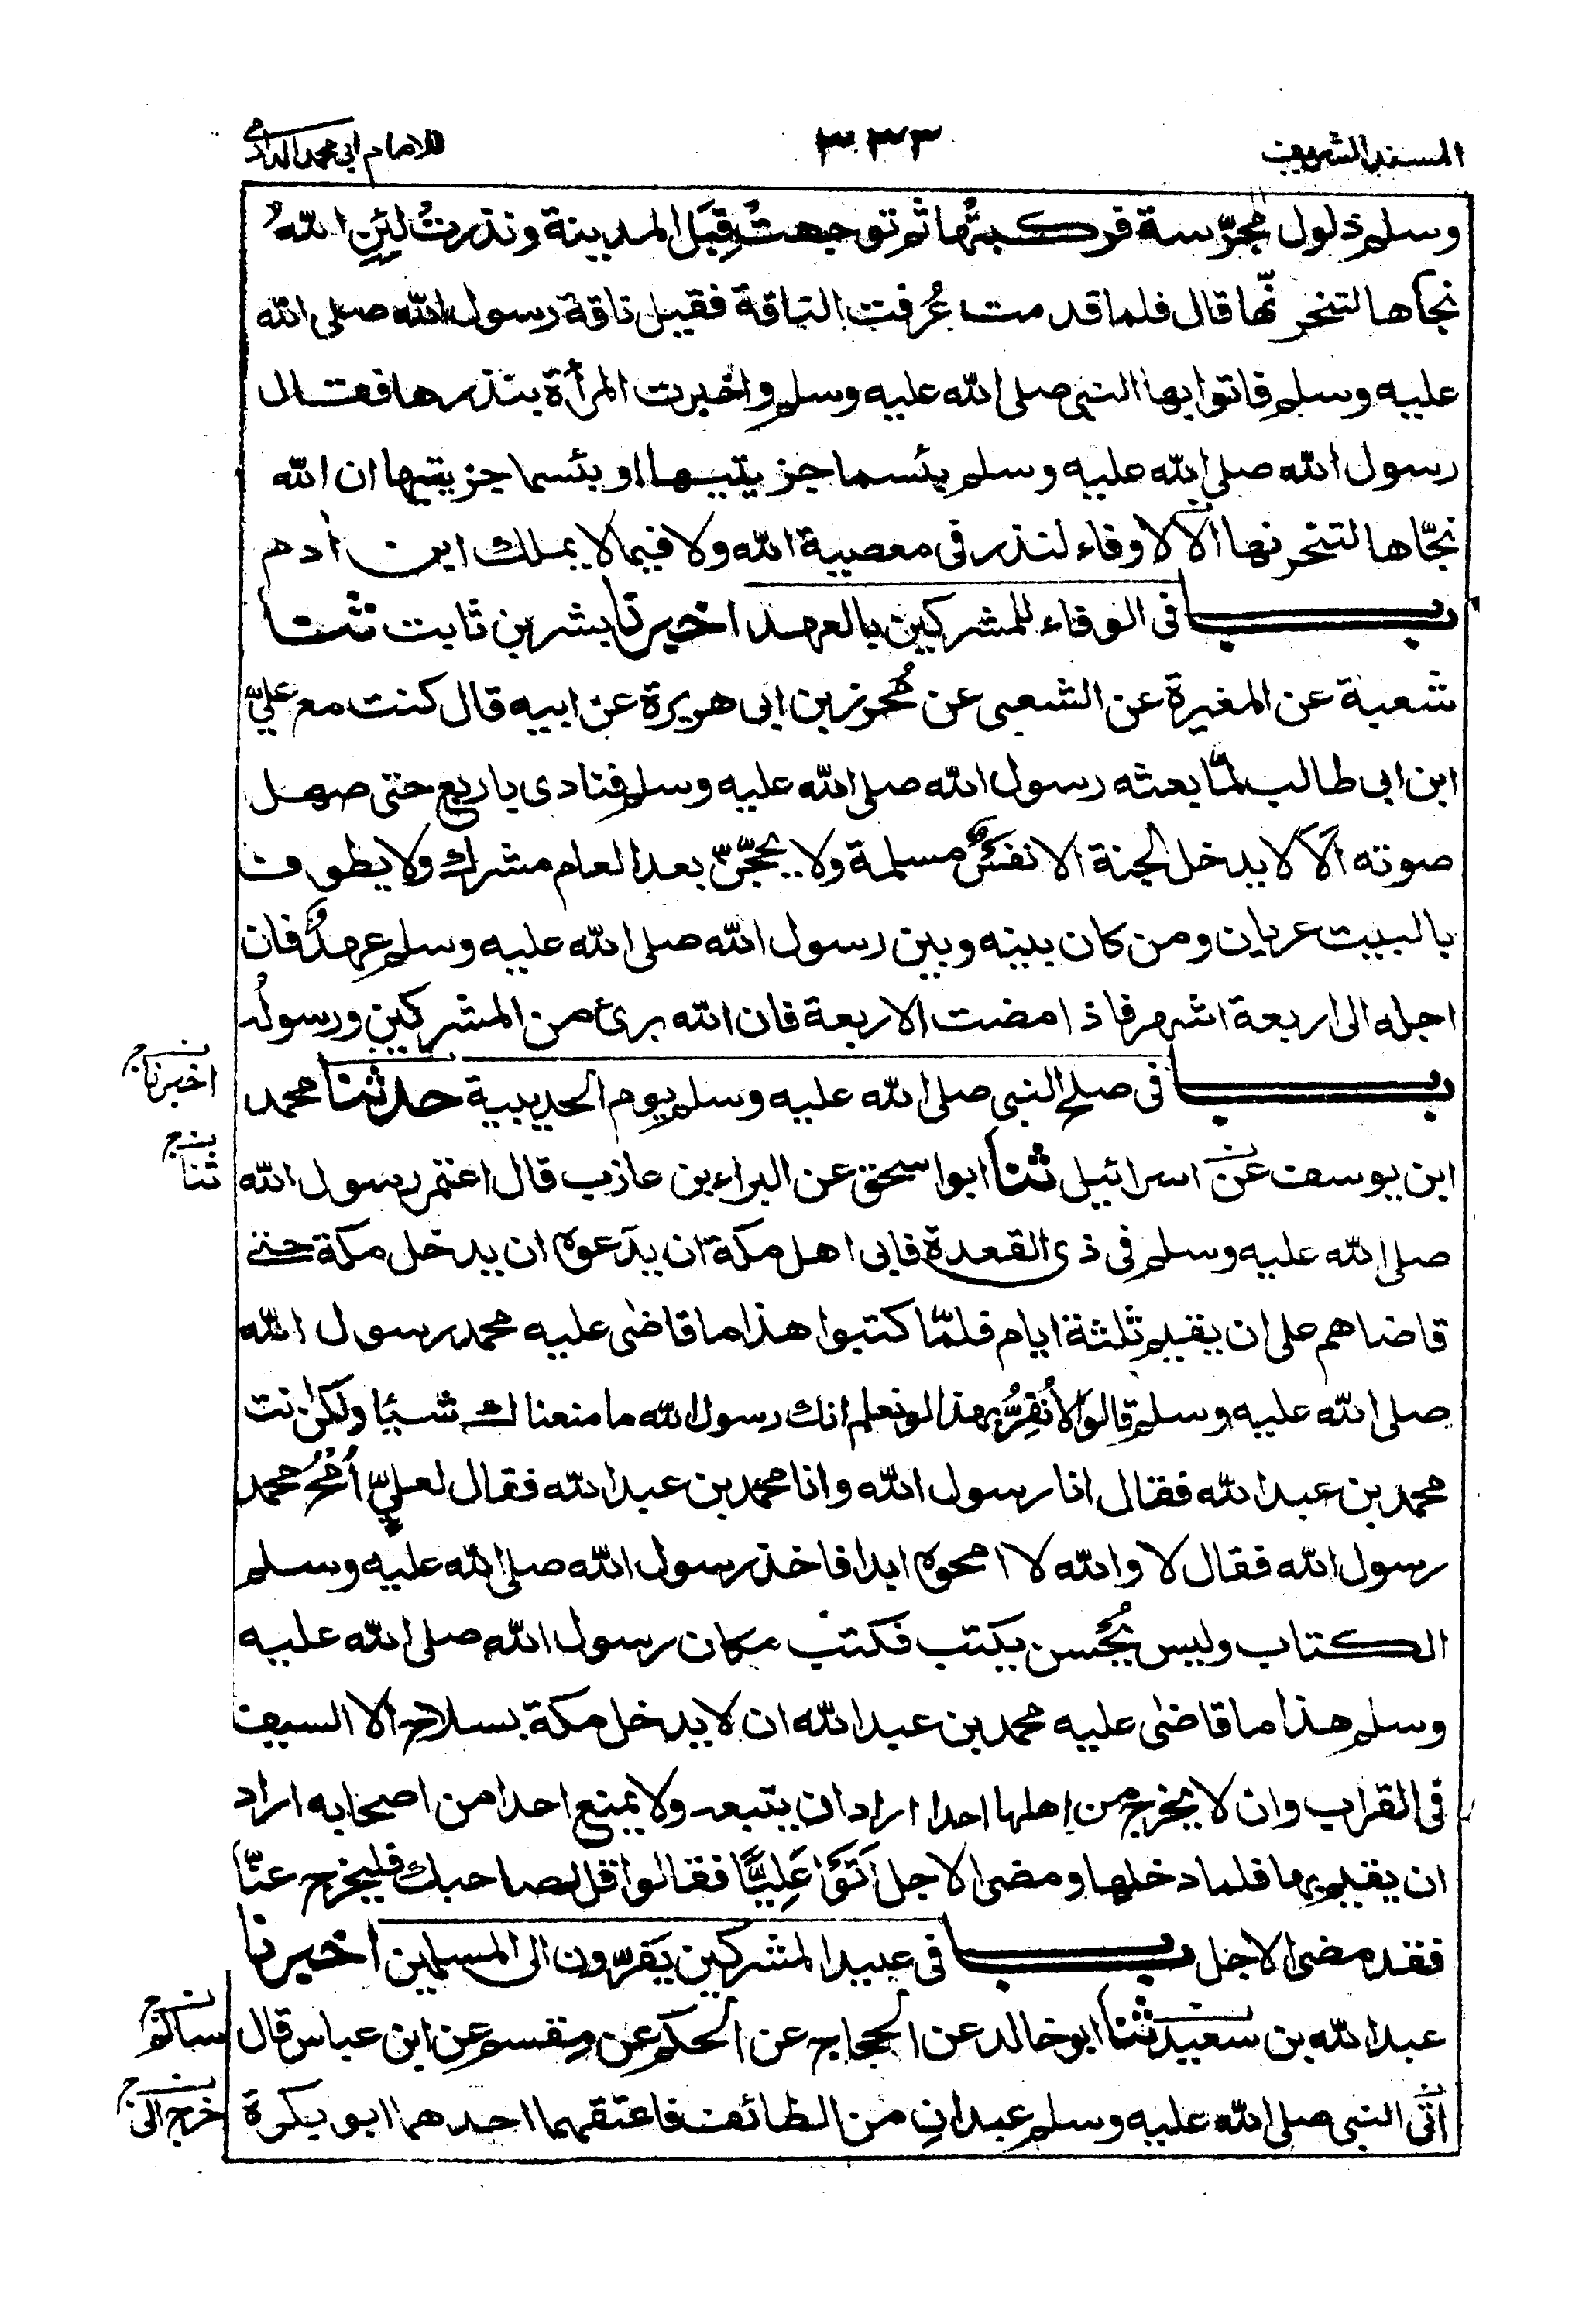 المسند الشريف ٣٣٣ للامام ابى محمد الدارمى
وسلم ذلول مجرّسة فركبتُها ثم توجهتُ قِبَل المدينة ونذرتُ لئِنِ اللهُ
نجاها لتنحرنّها قال فلما قدمت عُرفت الناقة فقيل ناقة رسول الله صلى الله
عليه وسلم فاتوا بها النبى صلى الله عليه وسلم واخبرت المرأة بنذرها فقال
رسول الله صلى الله عليه وسلم بئسما جزيتيها او بئسما جزيتيها ان الله
نجّاها لتنحرنها الا لا وفاء لنذر فى معصية الله ولا فيما لا يملك ابن ادم
باب فى الوفاء للمشركين بالعهد اخبرنا بشر بن ثابت ثنا
شعبة عن المغيرة عن الشعبى عن مُحرز بن ابى هريرة عن ابيه قال كنت مع علىّ
ابن ابى طالب لمّا بعثه رسول الله صلى الله عليه وسلم فنادى باربع حتى صهل
صوته اَلا لا يدخل الجنة الا نفسٌ مسلمة ولا يحجّنّ بعد العام مشرك ولا يطوف
بالبيت عريان ومن كان بينه وبين رسول الله صلى الله عليه وسلم عهدٌ فان
اجله الى اربعة اشهر فاذا مضت الاربعة فان الله برئ من المشركين ورسولُه
باب فى صلح النبى صلى الله عليه وسلم يوم الحديبية حدثنا محمد
اخبرنا
ابن يوسف عن اسرائيل ثنا ابو اسحق عن البراء بن عازب قال اعتمر رسول الله
ثنا
صلى الله عليه وسلم فى ذى القعدة فابى اهل مكة ان يدَعوه ان يدخل مكة حتى
قاضاهم على ان يقيم ثلثة ايام فلمّا كتبوا هذا ما قاضى عليه محمد رسول الله
صلى الله عليه وسلم قالوا لا نُقِرُّ بهذا لو نعلم انك رسول الله ما منعناك شيئا ولكن انت
محمد بن عبد الله فقال انا رسول الله وانا محمد بن عبد الله فقال لعلىّ اُمْحُ محمد
رسول الله فقال لا والله لا امحوه ابدا فاخذ رسول الله صلى الله عليه وسلم
الكتاب وليس يُحسن يكتب فكتب مكان رسول الله صلى الله عليه
وسلم هذا ما قاضى عليه محمد بن عبد الله ان لا يدخل مكة بسلاح الا السيف
فى القراب وان لا يخرج من اهلها احدا اراد ان يتبعه ولا يمنع احدا من اصحابه اراد
ان يقيم بها فلما دخلها ومضى الاجل اَتَوْا عَلِيًّا فقالوا قل لصاحبك فليخرج عنّا
فقد مضى الاجل باب فى عبيد المشركين يَفرّون الى المسلمين اخبرنا
عبد الله بن سعيد ثنا ابو خالد عن الحجاج عن الحكم عن مِقسم عن ابن عباس قال
اتى النبى صلى الله عليه وسلم عبدانِ من الطائف فاعتقهما احدهما ابو بكرة
خرج الى